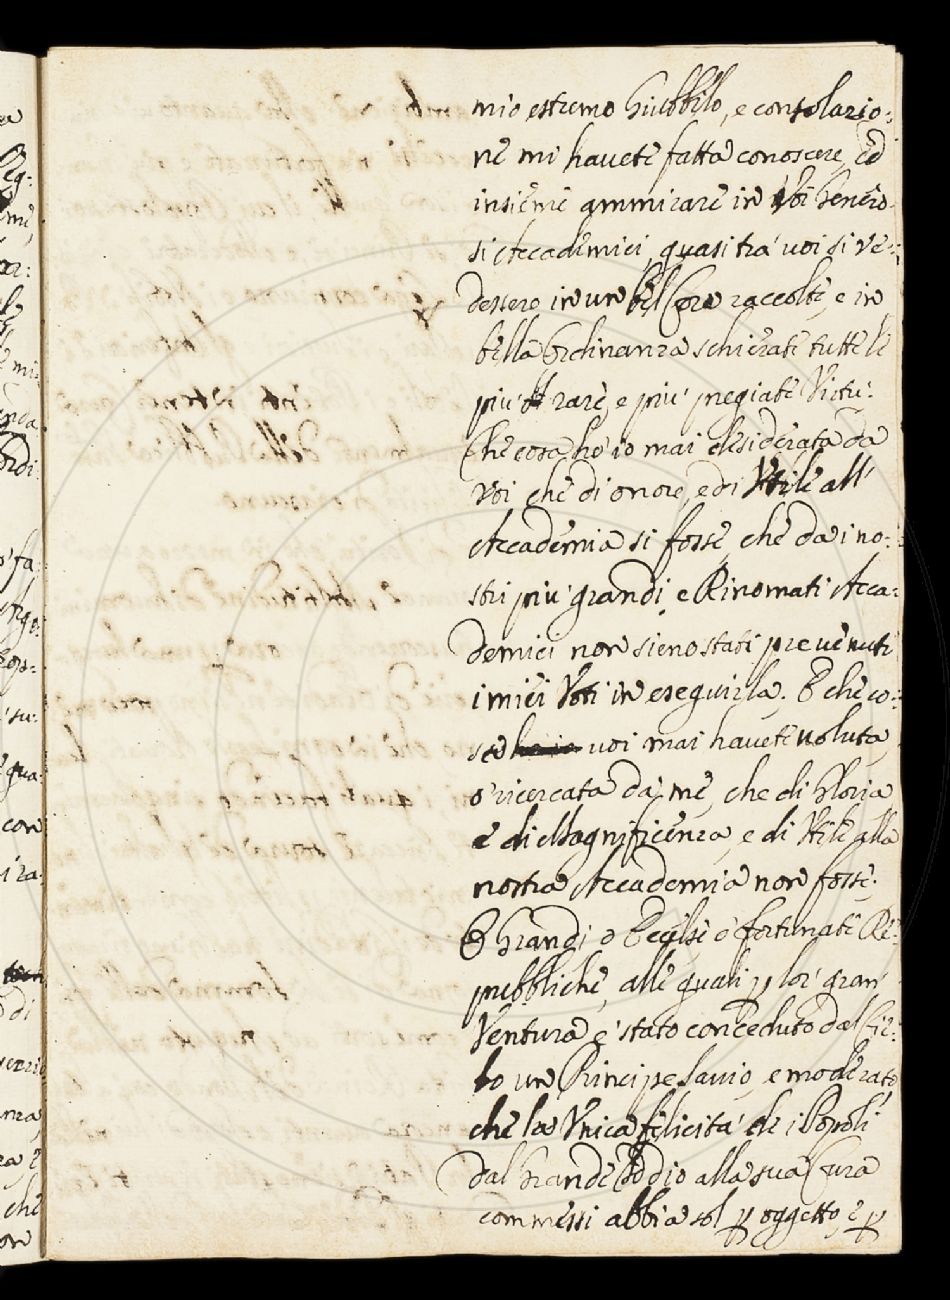 mio estremo Giubbilo, e consolazio:
ne mi havete fatta conoscere, ed
insieme ammirare in Voi Genero
si Accademici, quasi tra' voi si ve:
dessero in un bel Coro raccolte, e in
bella Ordinanza schierate tutte le
piu' rare, e piu' pregiate Virtu'.
Che cosa ho' io mai desiderata da
Voi che di onore, e di Utile all'
Accademia si fosse, che da i no:
stri piu' grandi, e Rinomati Acca:
demici non sieno stati prevenuti
i miei Voti in eseguirla. E che co:
sa voi mai havete voluta,
o' ricercata da me, che di Gloria
e di Magnificenza, e di Utile alla
nostra Accademia non fosse.
O Grandi, o Eccelse o' fortunate Re:
pubbliche, alle quali p lor' gran
Ventura e' stato conceduto dal Cie:
lo un Principe Savio, e moderato
che la Unica felicita' de i Popoli
dal Grande Iddio alla sua Cura
commessi abbia sol p oggetto e p